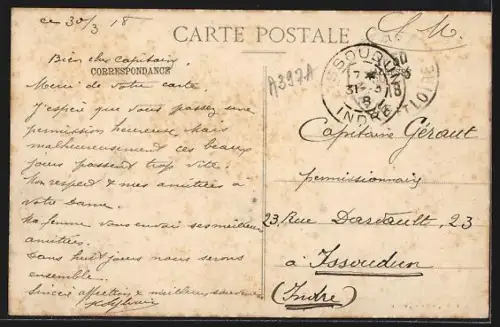 ce 30/3 18
CARTE POSTALE
S. M.
Bien cher Capitaine
CORRESPONDANCE
Merci de votre carte.
J'espère que vous passez une
permission heureuse, mais
malheureusement ces beaux
jours passent trop vite.
Mon respect & mes amitiés à
votre dame.
Ma femme vous envoie ses meilleures
amitiés.
Dans huit jours nous serons
ensemble.
Sincère affection & meilleurs souvenirs
A397A
ISSOUDUN
31-3
18
INDRE
Capitaine Géraut
permissionnaire
23, Rue Dardault, 23
à Issoudun
(Indre)